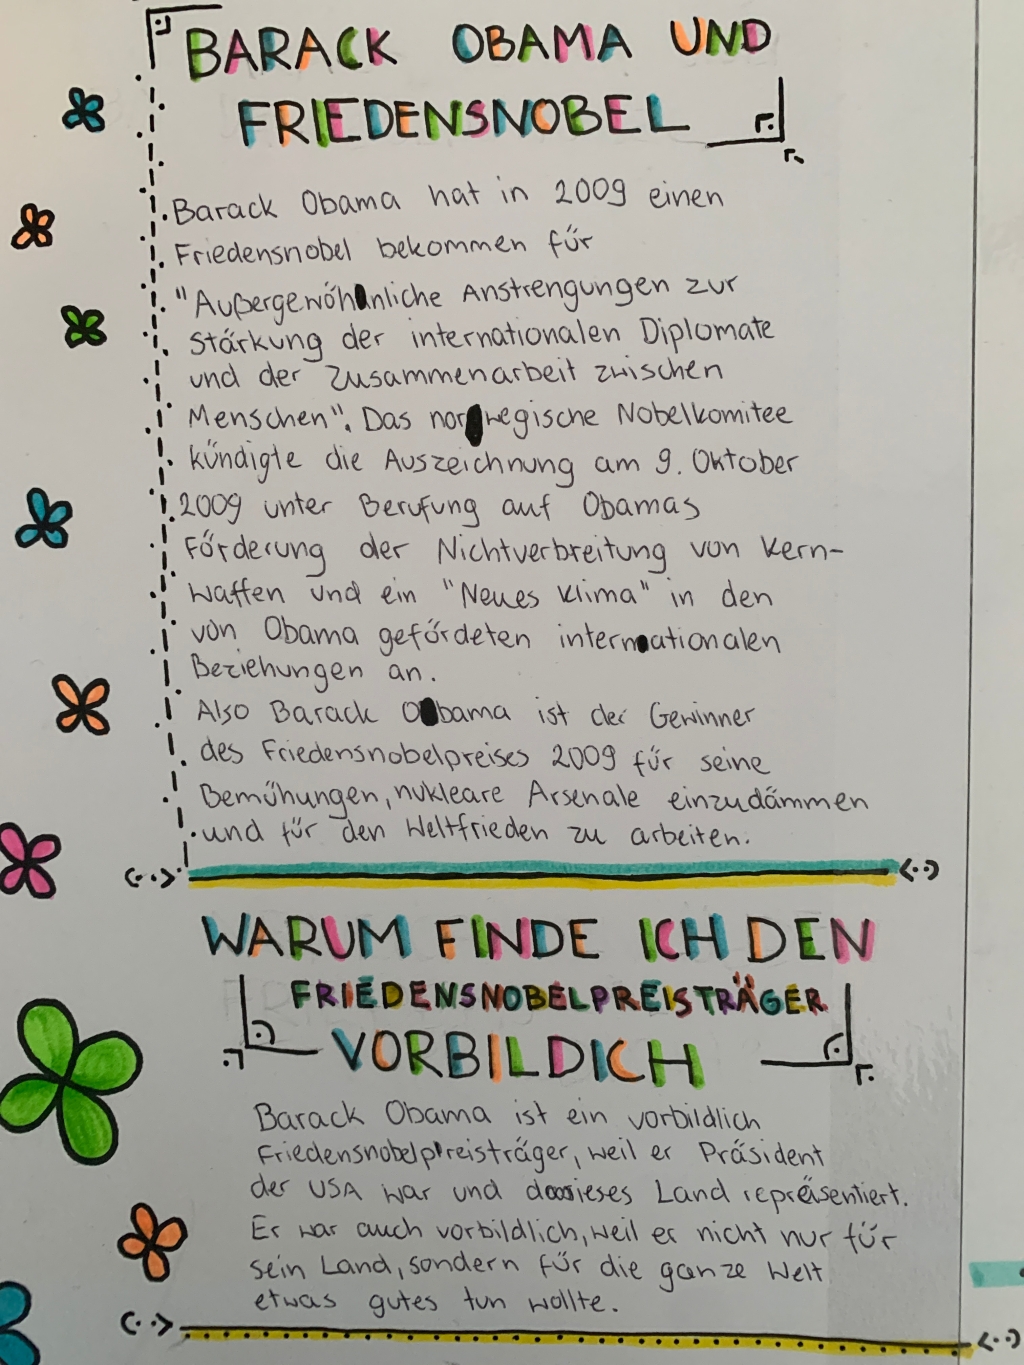 BARACK OBAMA UND
FRIEDENSNOBEL
Barack Obama hat in 2009 einen
Friedensnobel bekommen für
"Außergewöhnliche Anstrengungen zur
Stärkung der internationalen Diplomate
und der Zusammenarbeit zwischen
Menschen". Das norwegische Nobelkomitee
kündigte die Auszeichnung am 9. Oktober
2009 unter Berufung auf Obamas
Förderung der Nichtverbreitung von Kern-
waffen und ein "Neues Klima" in den
von Obama gefördeten internationalen
Beziehungen an.
Also Barack Obama ist der Gewinner
des Friedensnobelpreises 2009 für seine
Bemühungen, nukleare Arsenale einzudämmen
und für den Weltfrieden zu arbeiten.
WARUM FINDE ICH DEN
FRIEDENSNOBELPREISTRÄGER
VORBILDICH
Barack Obama ist ein vorbildlich
Friedensnobelpreisträger, weil er Präsident
der USA war und dieses Land repräsentiert.
Er war auch vorbildlich, weil er nicht nur für
sein Land, sondern für die ganze Welt
etwas gutes tun wollte.